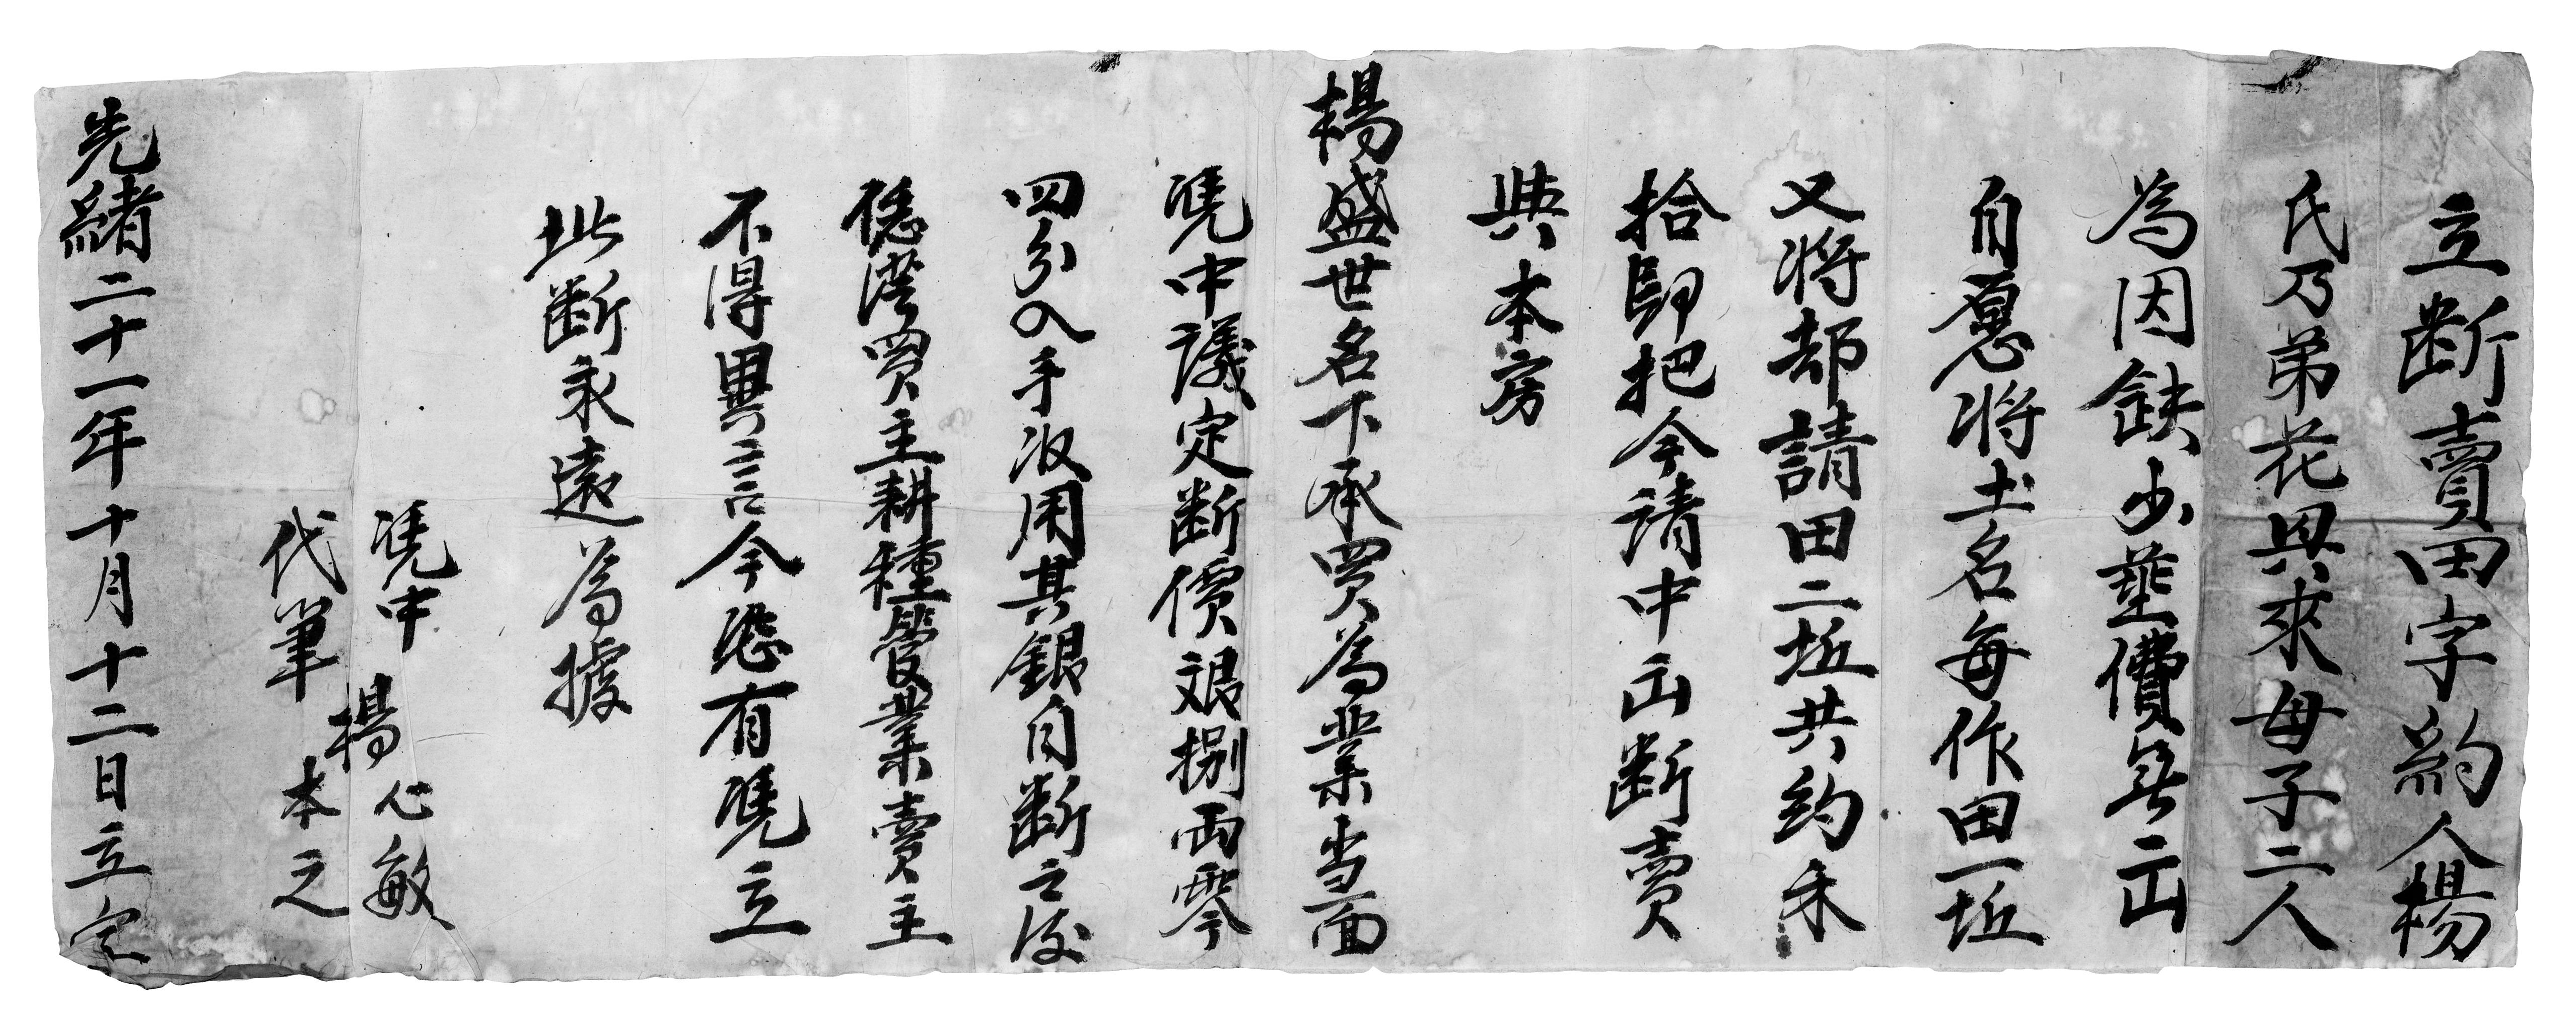 立断賣田字約人楊
氏乃弟花具來母子二人
為因缺少葬費無出
自愿将土名每作田一坵
又将却請田二坵共約禾
拾卸把今請中出断賣
典本房
楊盛世名下承買為業当面
凴中議定断價銀捌両零
四分入手収用其銀自断之後
憑買主耕種管業賣主
不得異言今恐有凴立
此断永遠為據
凴中 楊心敏
代筆 楊本之
光緒二十一年十月十二日立字